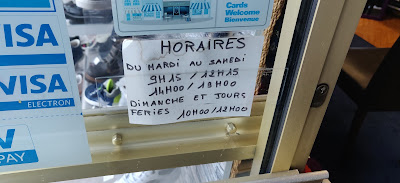 Cards
Welcome
Bienvenue
VISA
VISA
ELECTRON
PAY
HORAIRES
DU MARDI AU SAMEDI
9H15 / 12H15
14H00 / 19H00
DIMANCHE ET JOURS
FERIES 10H00/12H00